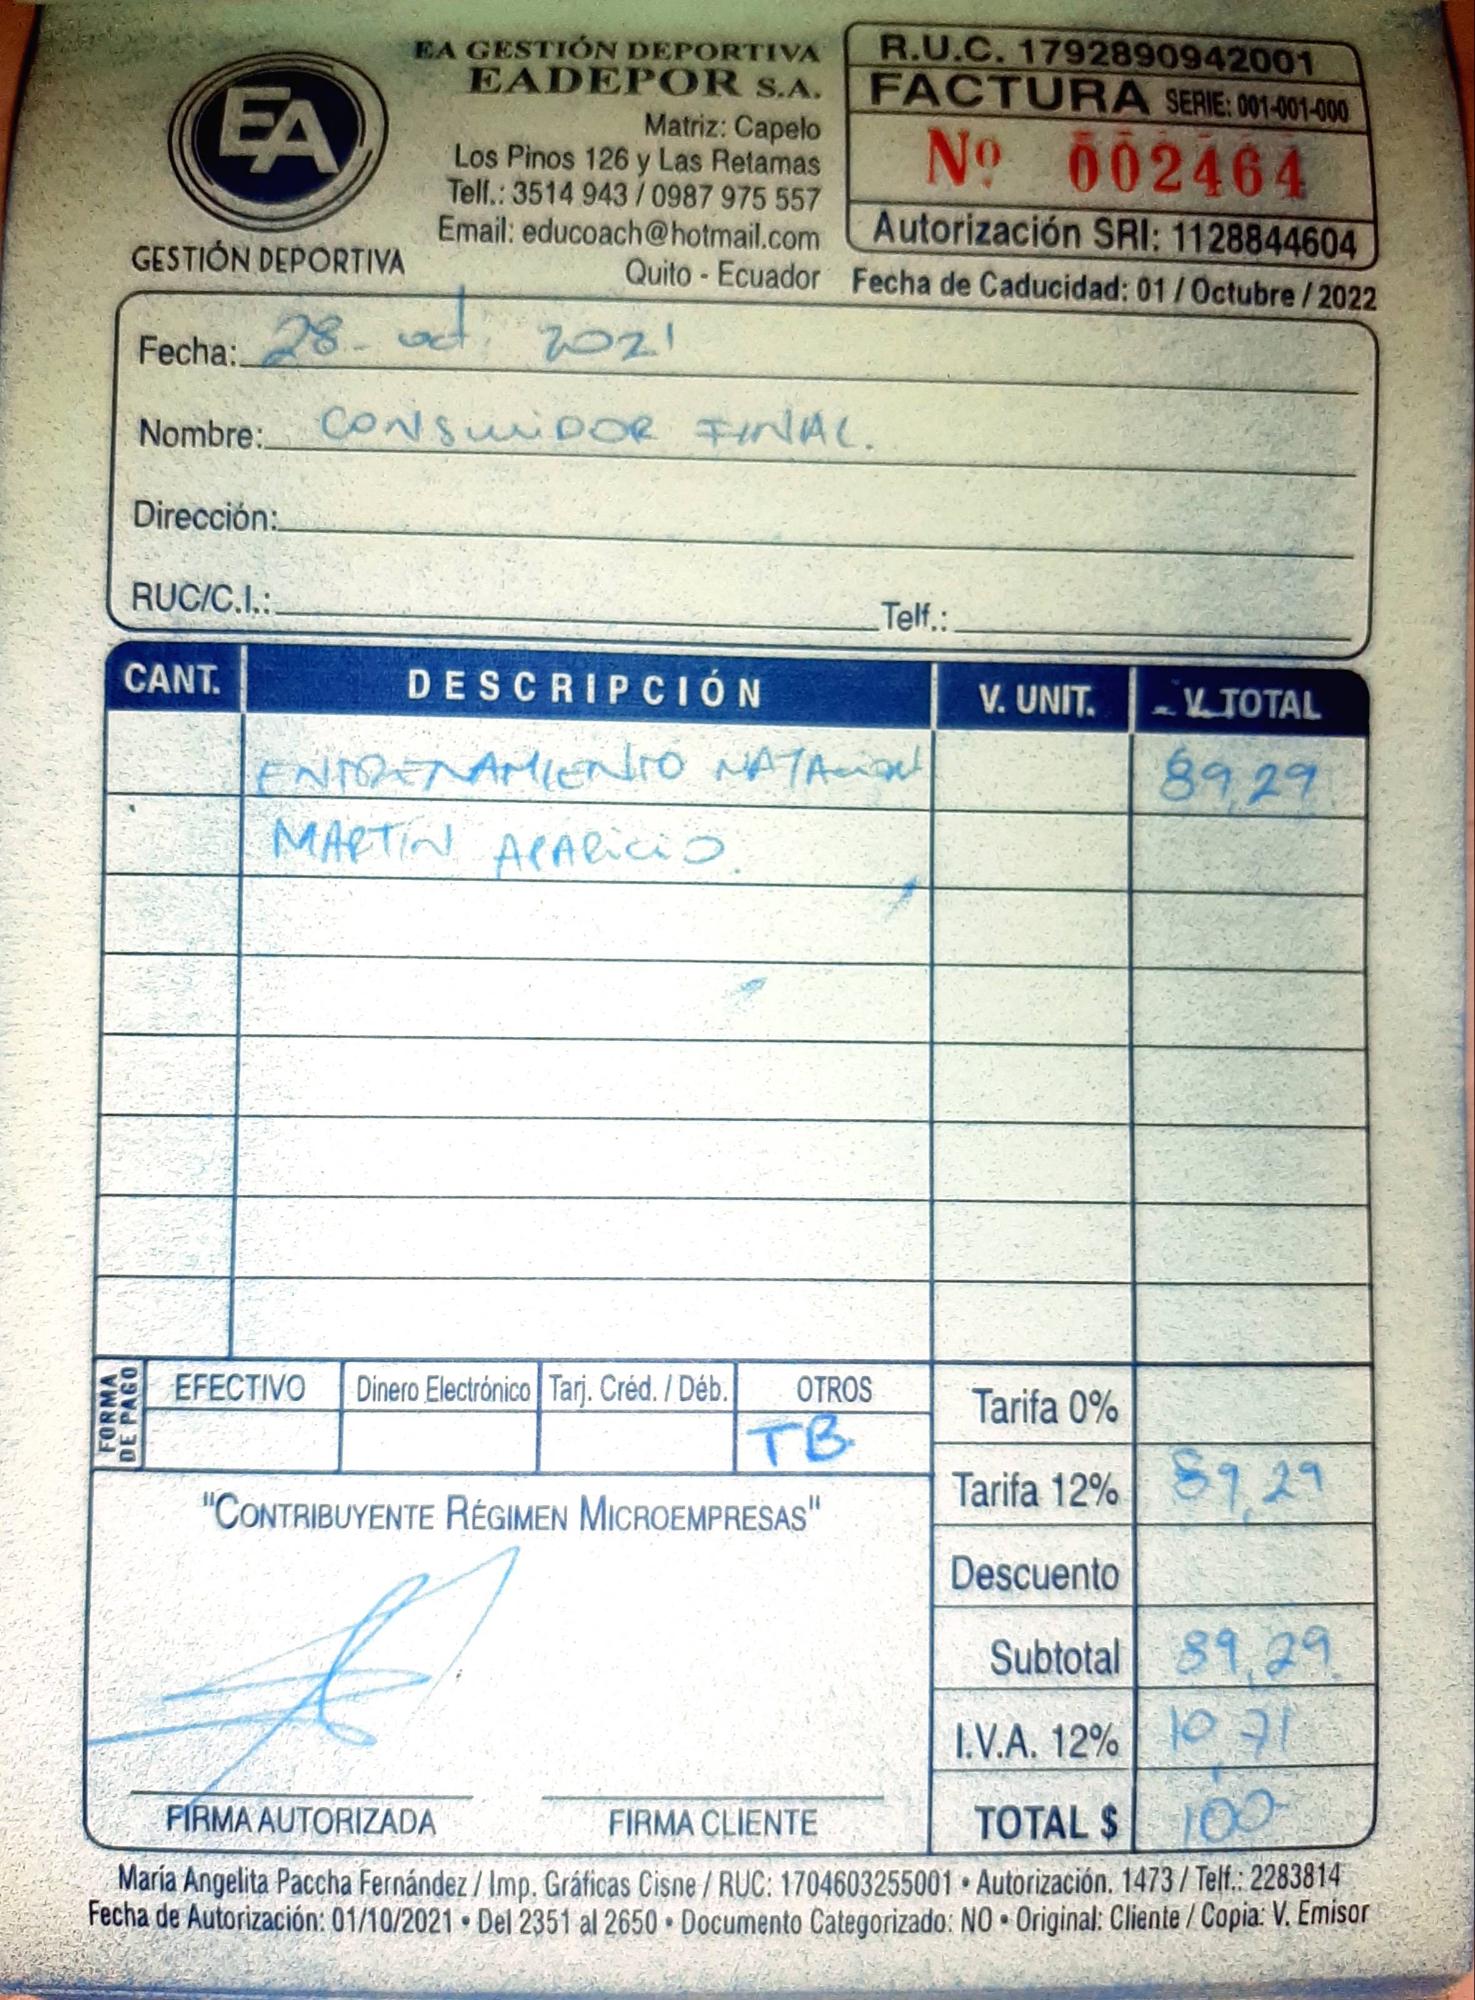 EA
GESTIÓN DEPORTIVA
EA GESTIÓN DEPORTIVA
EADEPOR S.A.
Matriz: Capelo
Los Pinos 126 y Las Retamas
Telf.: 3514 943 / 0987 975 557
Email: educoach@hotmail.com
Quito - Ecuador
R.U.C. 1792890942001
FACTURA SERIE: 001-001-000
Nº 002464
Autorización SRI: 1128844604
Fecha de Caducidad: 01 / Octubre / 2022
Fecha: 28 - oct. 2021
Nombre: CONSUMIDOR FINAL.
Dirección:
RUC/C.I.: Telf.:
CANT. DESCRIPCIÓN V. UNIT. V. TOTAL
ENTRENAMIENTO NATACION 89,29
MARTIN APARICIO.
FORMA DE PAGO
EFECTIVO Dinero Electrónico Tarj. Créd. / Déb. OTROS
TB
Tarifa 0%
Tarifa 12% 89,29
Descuento
Subtotal 89,29
I.V.A. 12% 10,71
TOTAL $ 100-
"CONTRIBUYENTE RÉGIMEN MICROEMPRESAS"
FIRMA AUTORIZADA FIRMA CLIENTE
María Angelita Paccha Fernández / Imp. Gráficas Cisne / RUC: 1704603255001 • Autorización. 1473 / Telf.: 2283814
Fecha de Autorización: 01/10/2021 • Del 2351 al 2650 • Documento Categorizado: NO • Original: Cliente / Copia: V. Emisor